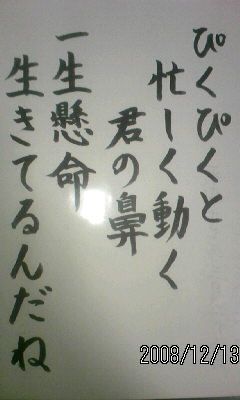 ぴくぴくと
忙しく動く
君の鼻
一生懸命
生きてるんだね
2008/12/13